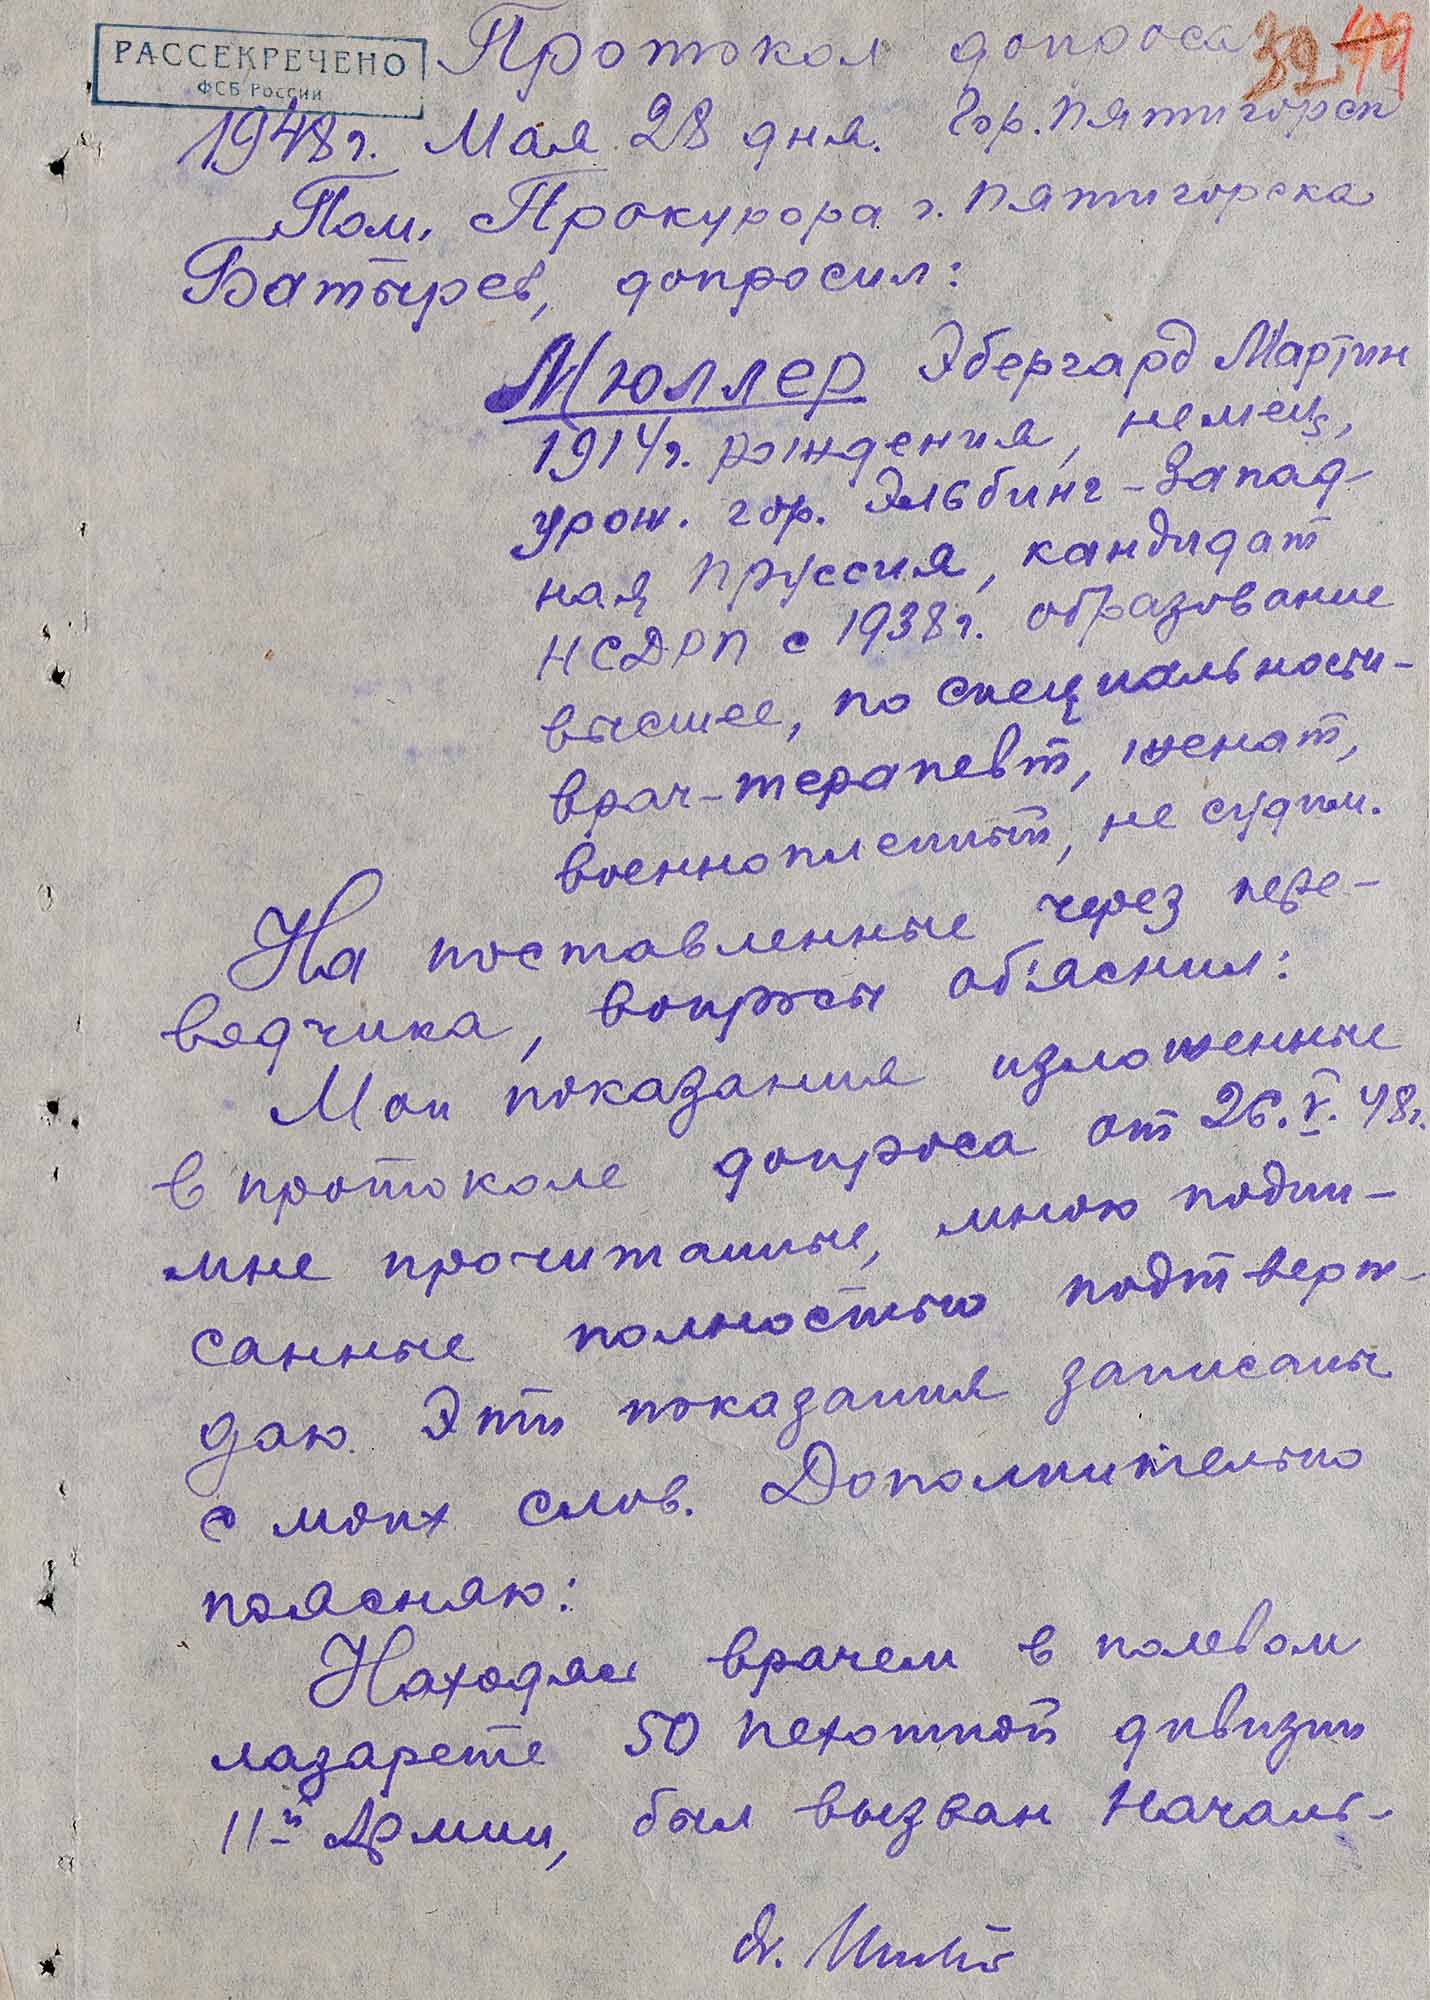 РАССЕКРЕЧЕНО
ФСБ РОССИИ
Протокол допроса
39 49
1948 г. Мая 28 дня. Гор. Пятигорск
Пом. Прокурора г. Пятигорска
Батырев, допросил:
Мюллер Эбергард Мартин
1914 г. рождения, немец,
урож. гор. Эльбинг – Запад-
ная Пруссия, кандидат
НСДРП с 1938 г. образование
высшее, по специальности –
врач-терапевт, женат,
военнопленный, не судим.
На поставленные через пере-
водчика, вопросы об'яснил:
Мои показания изложенные
в протоколе допроса от 26.V.48 г.
мне прочитанные, мною подпи-
санные полностью подтверж-
даю. Эти показания записаны
с моих слов. Дополнительно
поясняю:
Находясь врачем в полевом
лазарете 50 пехотной дивизии
11-й Армии, был вызван Началь-
dr.